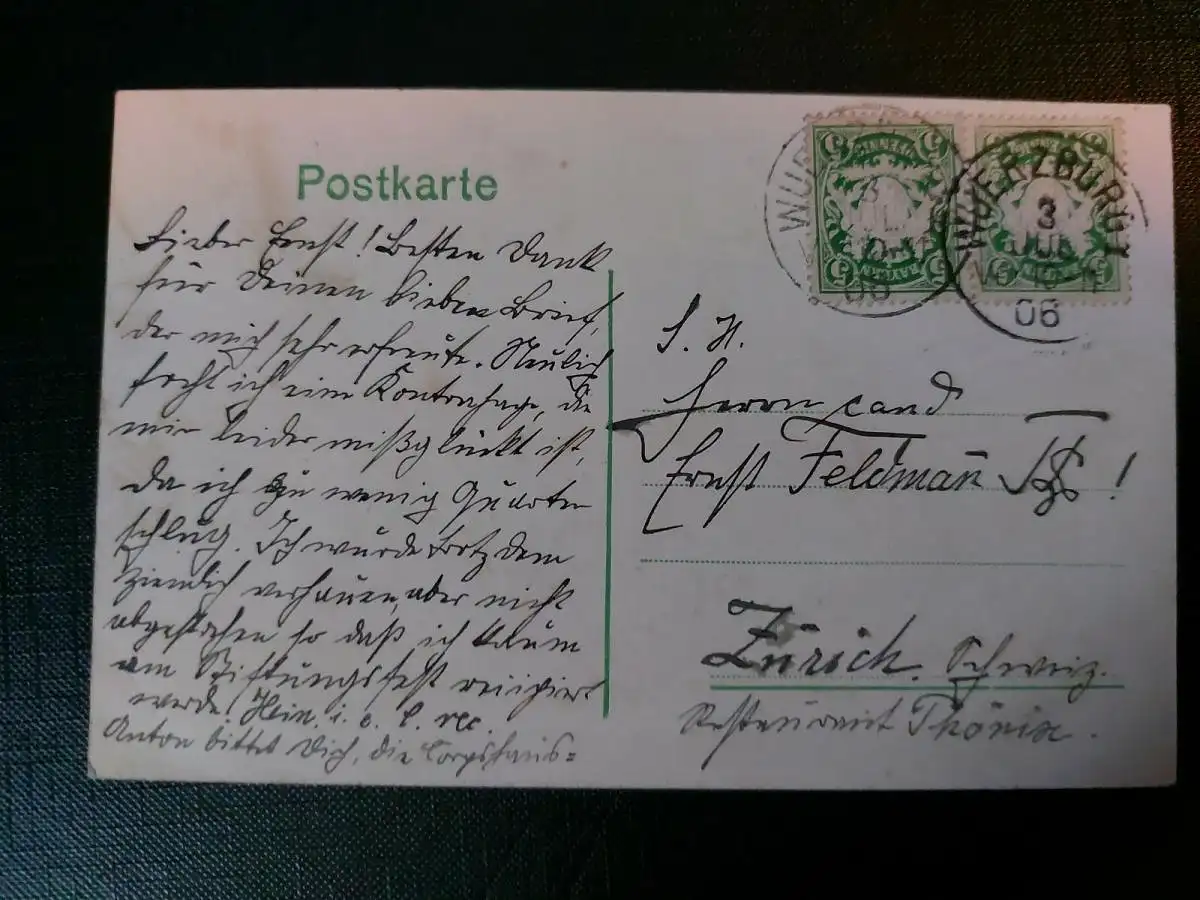 Postkarte
Lieber Ernst! Besten Dank
für Deinen lieben Brief,
der mich sehr erfreute. Neulich
focht ich eine Kontrahage, die
mir leider mißglückt ist,
da ich zu wenig Quarten
schlug. Ich wurde trotzdem
ziemlich verhauen, aber nicht
abgestochen so daß ich kaum
am Stiftungsfest
werde. Hein. i. a. C. rec.
Anton bittet Dich, die Corpshaus=
WUERZBURG
3
JUL
06
WUERZBURG 1
3
JUL
06
BAYERN
5
5
S. H.
Herrn cand
Ernst Feldman̄
Zürich. Schweiz.
Restaurant Phönix.